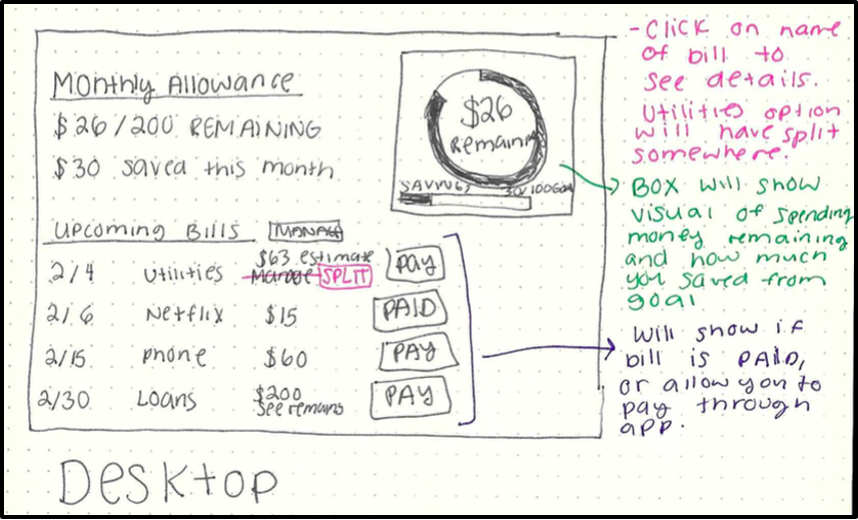 Monthly Allowance
$26/200 REMAINING
$30 saved this month
$26
Remaining
SAVINGS 30/100 Goal
Upcoming Bills MANAGE
2/4 Utilities $63 estimate Pay
Manage SPLIT
2/6 Netflix $15 PAID
2/15 phone $60 PAY
2/30 Loans $200 PAY
See remains
- Click on name
of bill to
see details.
Utilities option
will have split
somewhere.
BOX will show
visual of spending
money remaining
and how much
you saved from
goal
Will show if
bill is PAID,
or allow you to
pay through
app.
Desktop